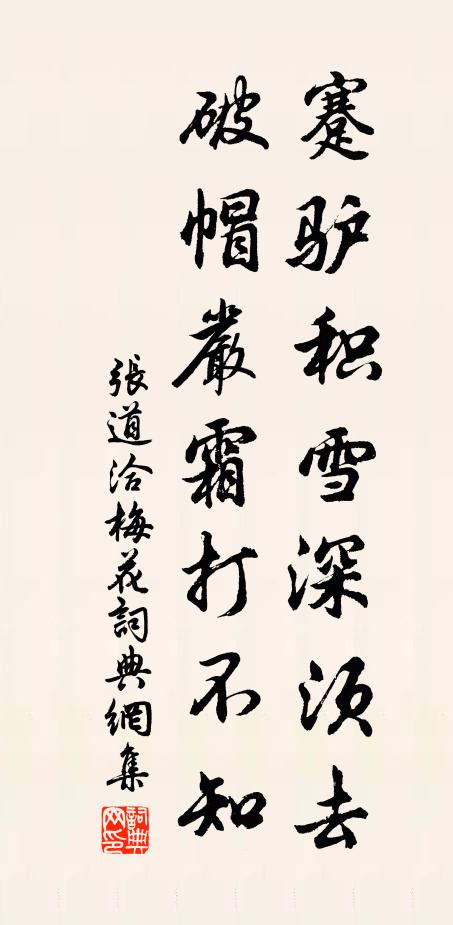 蹇驴积雪深须去
破帽嚴霜打不知
張道洽梅花詞典網集
詞典網印